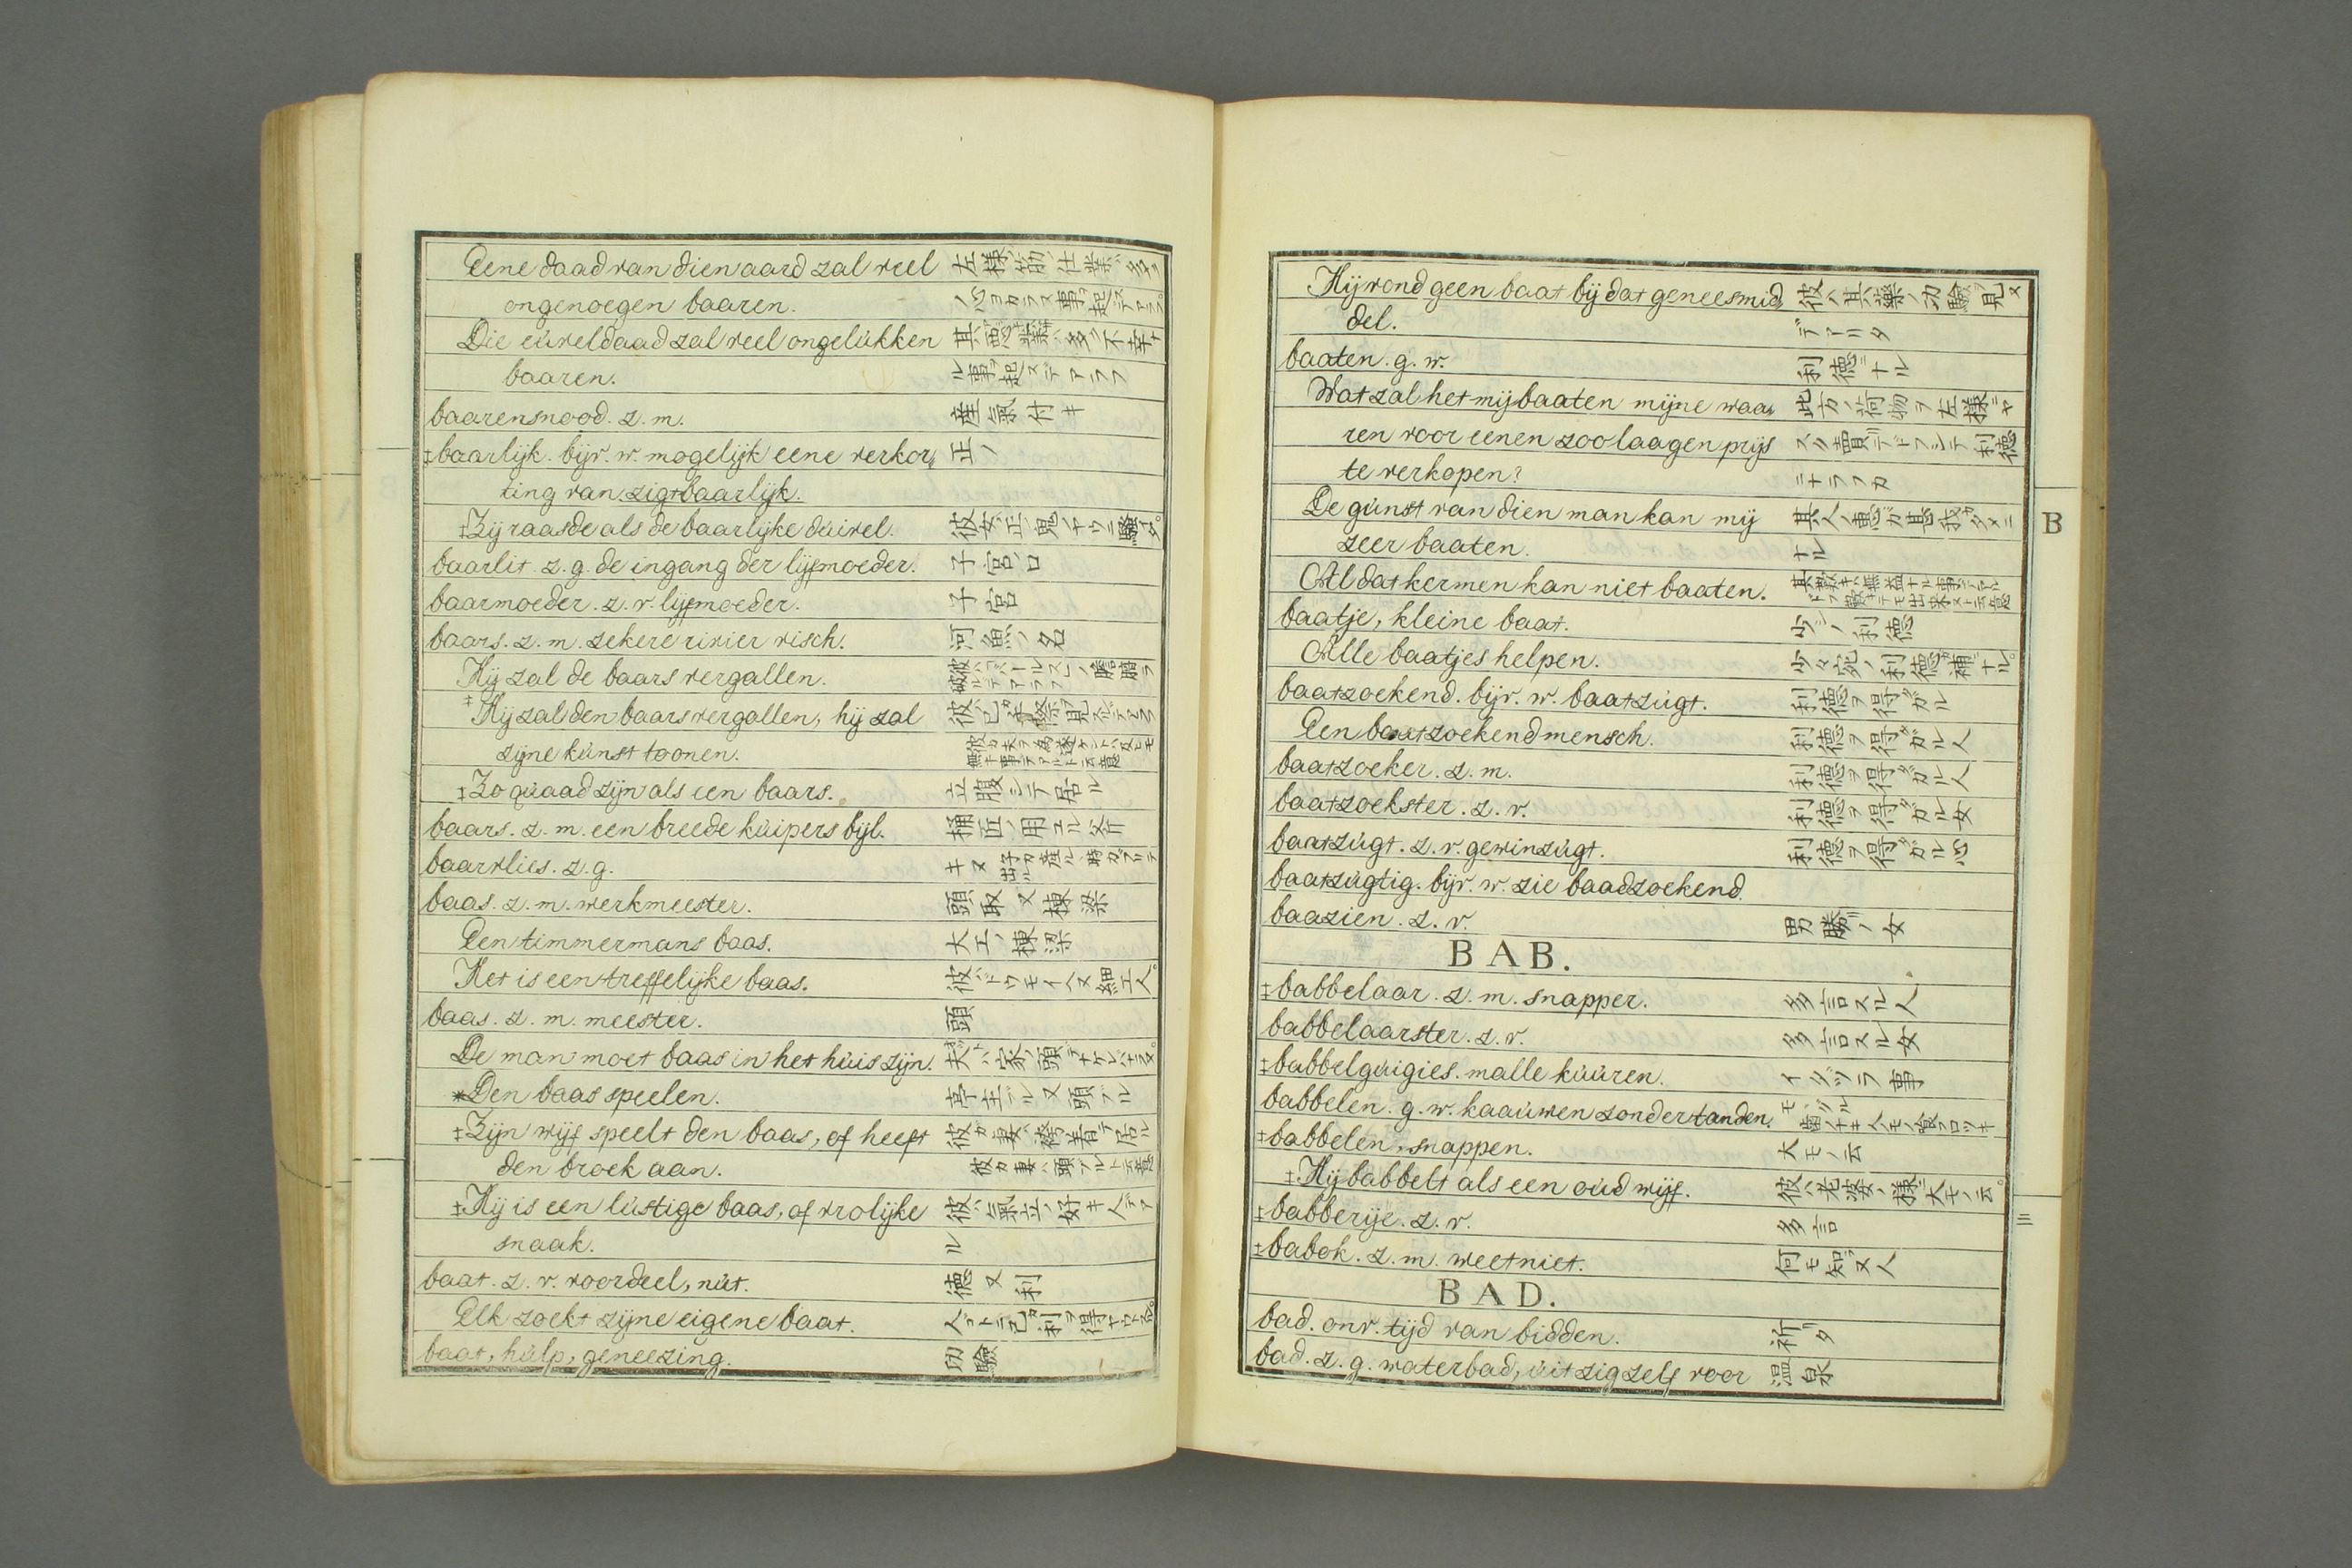 Eene daad van dien aard zal veel 左様ノ筋ノ仕業ハ多ク
ongenoegen baaren. 心ヨカラヌ事ヲ起スデアラフ
Die eúveldaad zal veel ongelúkken 其悪業ハ多ク不幸ナ
baaren. ル事ヲ起スデアラフ
baarensnood. z. m. 産氣付キ
‡baarlijk. bijv. w. mogelijk eene verkor„ 正ノ
ting van zigtbaarlijk.
‡Zij raasde als de baarlijke dúivel. 彼女ハ正ノ鬼ノヤウニ騒イダ。
baarlit. z. g. de ingang der lijfmoeder. 子宮ノ口
baarmoeder. z. v. lijfmoeder. 子宮
baars. z. m. zekere rivier visch. 河魚ノ名
Hij zal de baars vergallen. 彼ハ
‡Hij zal den baars vergallen, hij zal
zijne kúnst toonen.
‡Zo qúaad zijn als een baars. 立腹シテ居ル
baars. z. m. een breede kúipers bijl. 桶匠ノ用ユル斧
baarvlies. z. g.
baas. z. m. werkmeester. 頭取 又 棟梁
Een timmermans baas. 大工ノ棟梁
Het is een treffelijke baas. 彼ハドウモイヘヌ細工人。
baas. z. m. meester. 頭
De man moet baas in het húis zijn. 夫ハ家ノ頭デナケレバナラヌ。
*Den baas speelen. 亭主ブル 又 頭ブル
‡Zijn wijf speelt den baas, of heeft 彼カ妻ハ袴ヲ着テ居ル
den broek aan. 彼カ妻ハ頭ブルト云意
‡Hij is een lústige baas, of vrolijke 彼ハ氣立ノ好キ人デア
snaak. ル
baat. z. v. voordeel, nút. 徳 又 利
Elk zoekt zijne eigene baat.
baat, húlp, geneezing. 功驗
Hij vond geen baat bij dat geneesmid„ 彼ハ其藥ノ功驗ヲ見ヌ
del. デアリタ
baaten. g. w. 利徳ニナル
Wat zal het mij baaten mijne waa„ 此方ノ荷物ヲ左様ニヤ
ren voor eenen zoo laagen prijs スク賣テドフシテ利徳
te verkopen? ニナラフカ
De gúnst van dien man kan mij 其人ノ恵ガ甚我タメニ
zeer baaten. ナル
Al dat kermen kan niet baaten.
baatje, kleine baat. 少シノ利徳
Alle baatjes helpen. 少々宛ノ利徳ガ補ニナル。
baatzoekend. bijv. w. baatzúgt. 利徳ヲ得タガル
Een baatzoekend mensch. 利徳ヲ得タガル人
baatzoeker. z. m. 利徳ヲ得タガル人
baatzoekster. z. v. 利徳ヲ得タガル女
baatzúgt. z. v. gewinzúgt. 利徳ヲ得タガル心
baatzúgtig. bijv. w. zie baadzoekend.
baazien. z. v. 男勝リノ女
BAB.
‡babbelaar. z. m. snapper. 多言スル人
babbelaarster. z. v. 多言スル女
‡babbelgúigies. malle kúúren. イタヅラ事
babbelen. g. w. kaaúwen zonder tanden.
‡babbelen, snappen. 大モノ云
‡Hij babbelt als een oúd wijf. 彼ハ老婆ノ様ニ大モノ云。
‡babberije. z. v. 多言
‡babok. z. m. weetniet. 何モ知ラヌ人
BAD.
bad. onv. tijd van bidden. 祈リタ
bad. z. g. waterbad, úit zig zelf voor 温泉
B
三